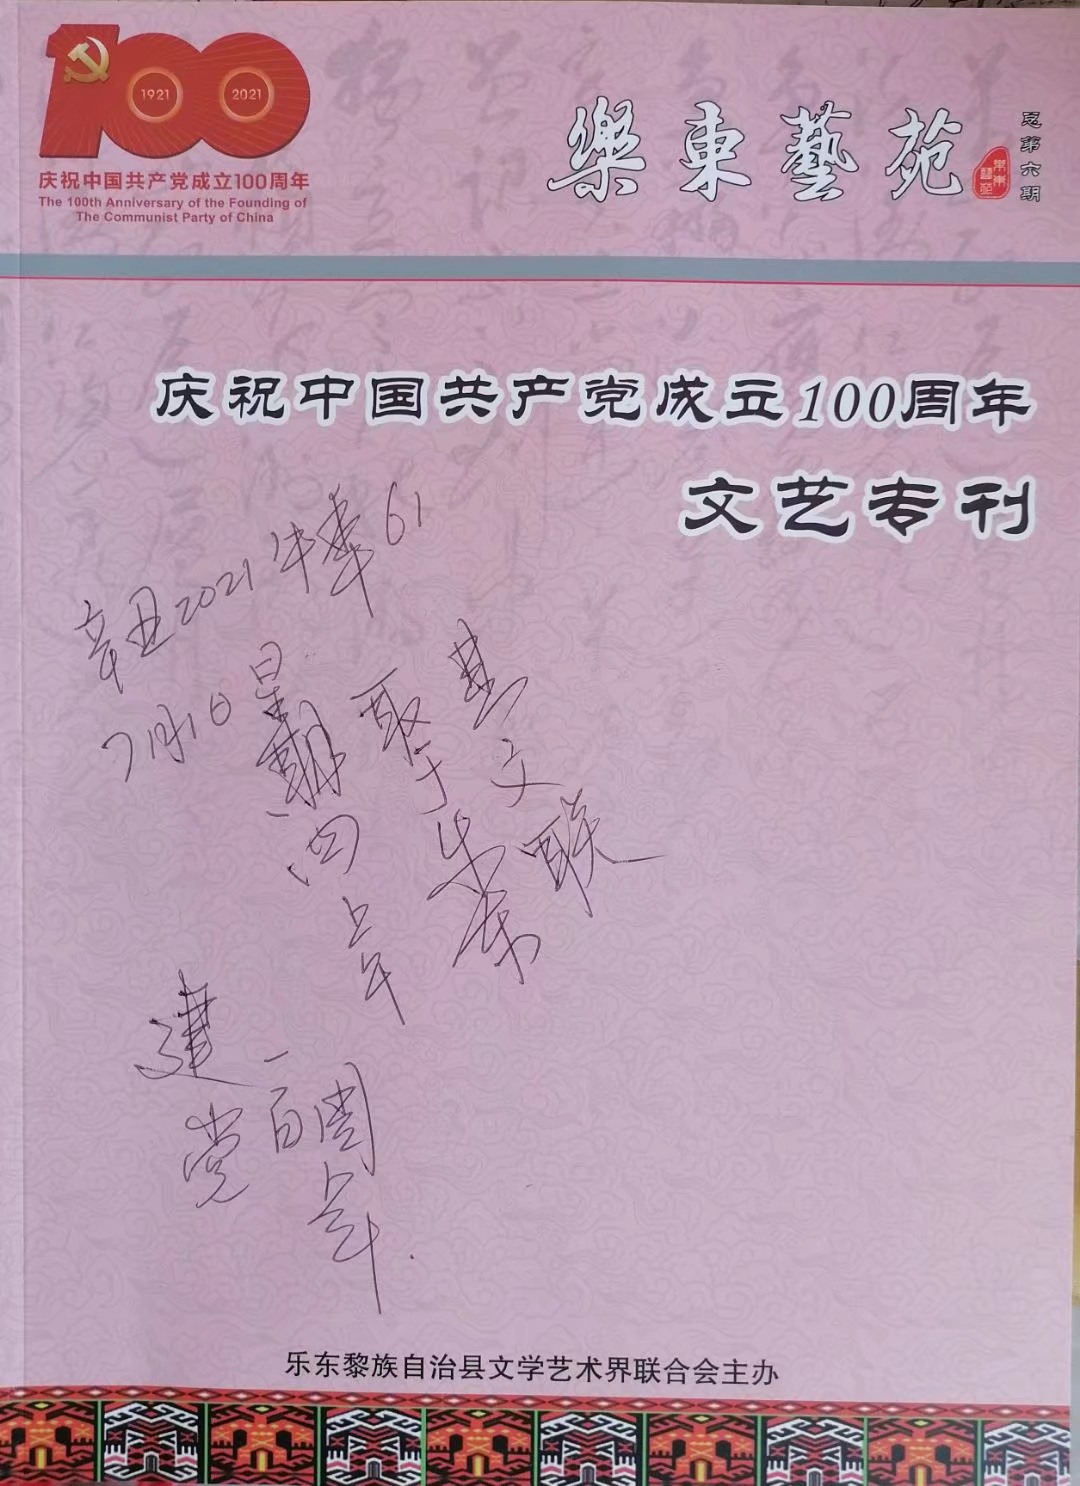 1921 2021
庆祝中国共产党成立100周年
The 100th Anniversary of the Founding of
The Communist Party of China
樂東藝苑
樂東藝苑
总第六期
庆祝中国共产党成立100周年
文艺专刊
辛丑2021牛年61
7月1日星期四上午
聚于
县文联
建党一百周年.
乐东黎族自治县文学艺术界联合会主办